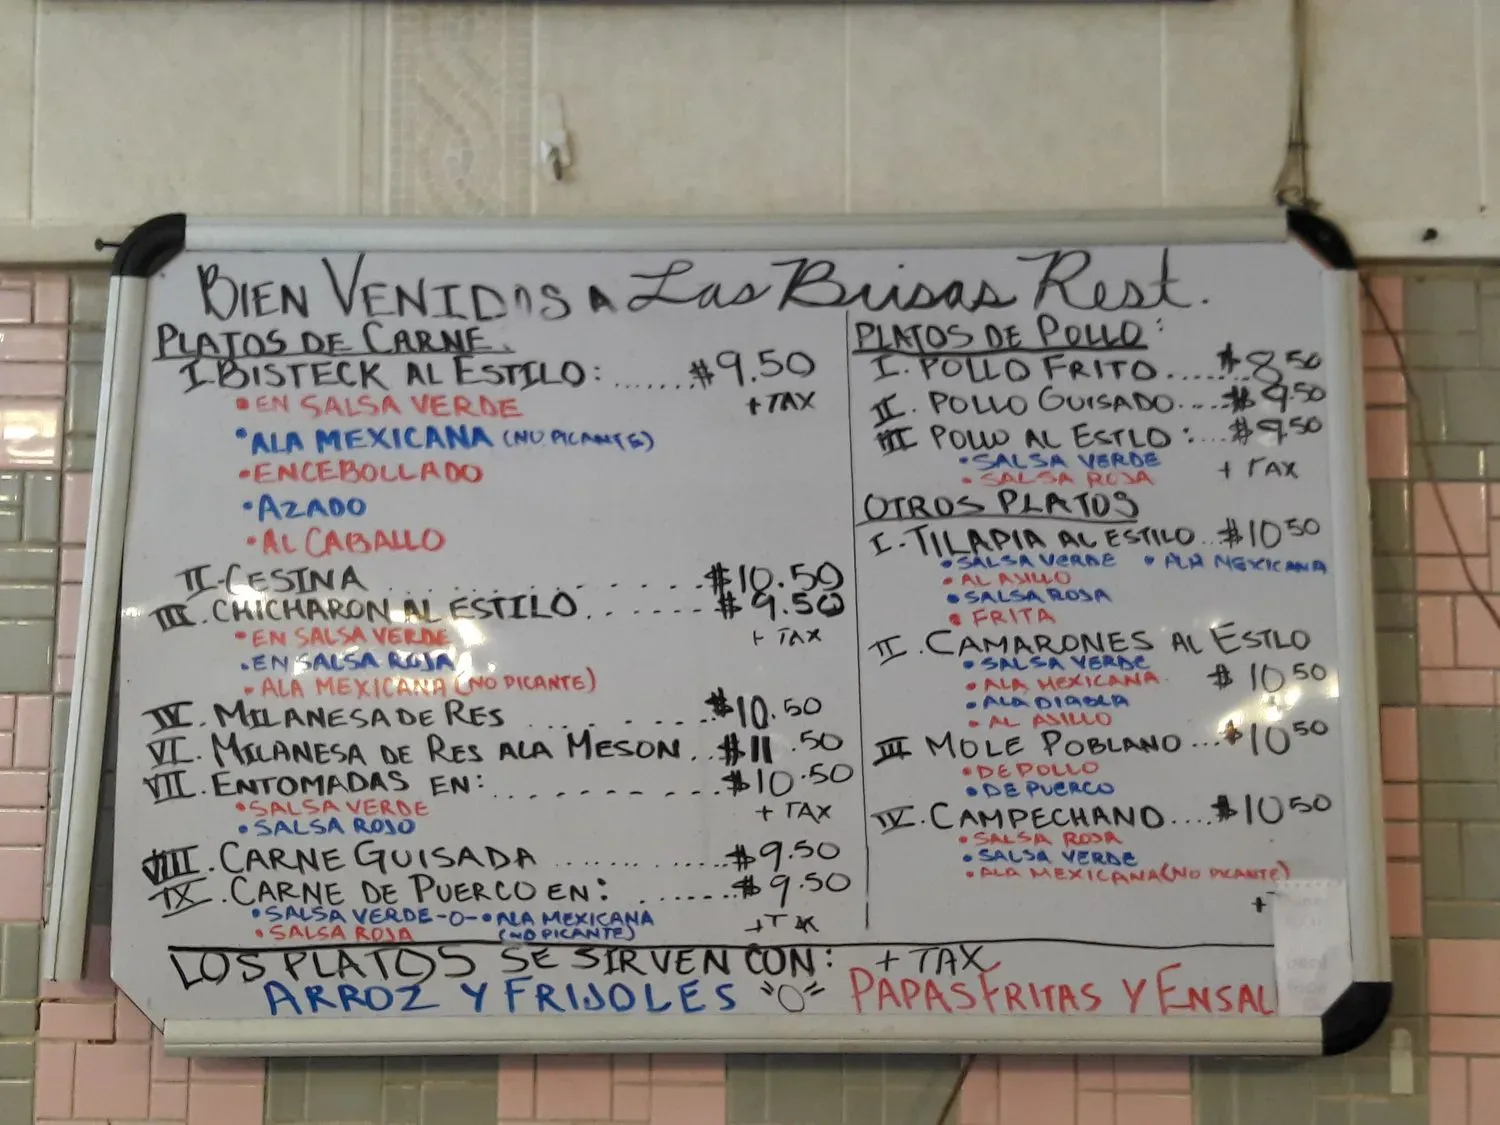 BIEN VENIDOS A Las Brisas Rest.
PLATOS DE CARNE.
I. BISTECK AL ESTILO: ......$9.50
• EN SALSA VERDE + TAX
• ALA MEXICANA (NO PICANTE)
• ENCEBOLLADO
• AZADO
• AL CABALLO
II. CESINA ............ $10.50
III. CHICHARON AL ESTILO....... $9.50
• EN SALSA VERDE + TAX
• EN SALSA ROJA
• ALA MEXICANA (NO PICANTE)
IV. MILANESA DE RES ........ $10.50
VI. MILANESA DE RES ALA MESON..$11.50
VII. ENTOMADAS EN: .......... $10.50
• SALSA VERDE + TAX
• SALSA ROJO
VIII. CARNE GUISADA ............ $9.50
IX. CARNE DE PUERCO EN: ...... $9.50
• SALSA VERDE -O- • ALA MEXICANA
• SALSA ROJA (NO PICANTE) + TAX
PLATOS DE POLLO:
I. POLLO FRITO......$8.50
II. POLLO GUISADO....$9.50
III POLLO AL ESTLO:...$9.50
• SALSA VERDE
• SALSA ROJA + TAX
OTROS PLATOS
I. TILAPIA AL ESTILO..$10.50
• SALSA VERDE • ALA MEXICANA
• AL AJILLO
• SALSA ROJA
• FRITA
II. CAMARONES AL ESTLO
• SALSA VERDE
• ALA MEXICANA. $10.50
• ALA DIABLA
• AL AJILLO
III MOLE POBLANO...$10.50
• DE POLLO
• DE PUERCO
IV. CAMPECHANO....$10.50
• SALSA ROJA
• SALSA VERDE
• ALA MEXICANA (NO PICANTE)
+ T
LOS PLATOS SE SIRVEN CON: + TAX
ARROZ Y FRIJOLES "O" PAPAS FRITAS Y ENSAL